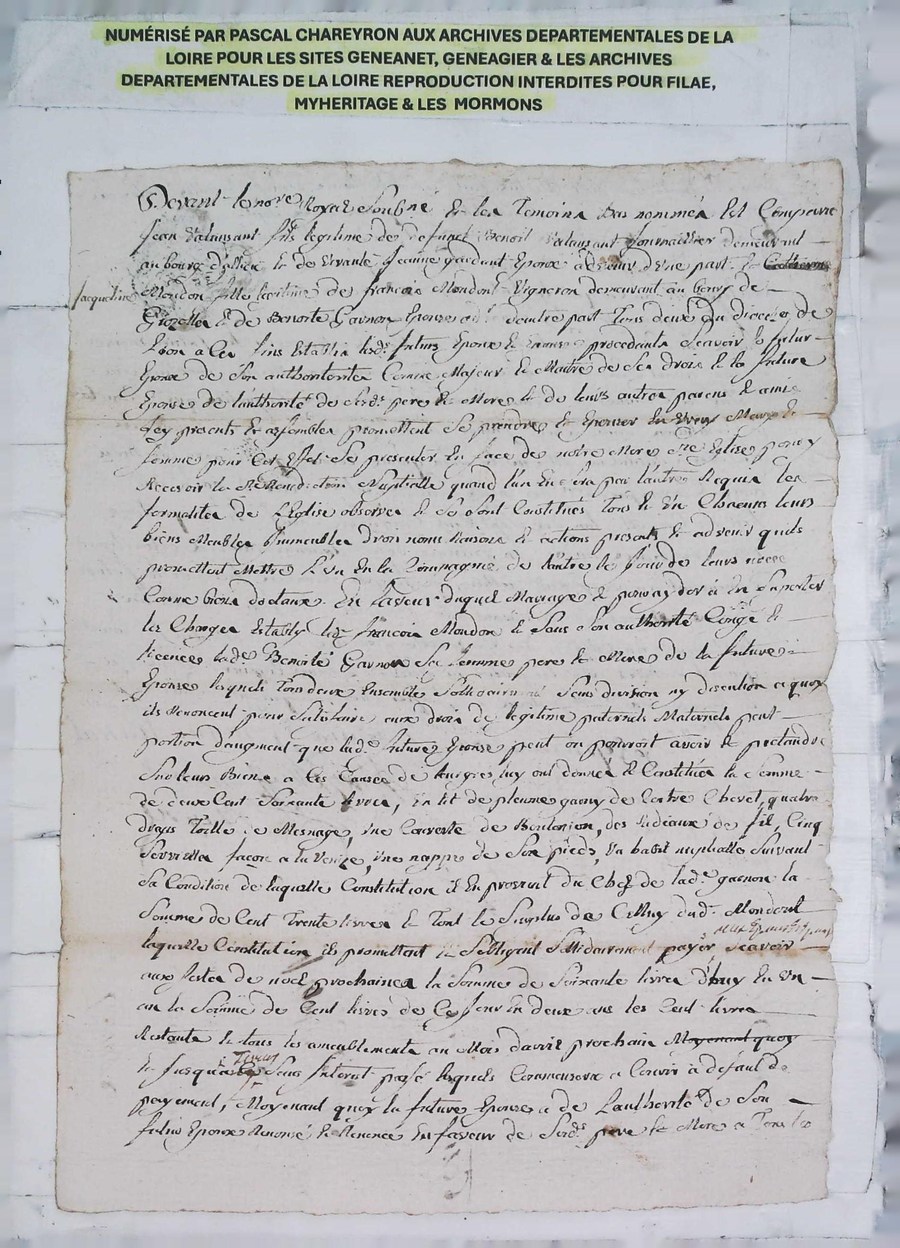 NUMÉRISÉ PAR PASCAL CHAREYRON AUX ARCHIVES DEPARTEMENTALES DE LA
LOIRE POUR LES SITES GENEANET, GENEAGIER & LES ARCHIVES
DEPARTEMENTALES DE LA LOIRE REPRODUCTION INTERDITES POUR FILAE,
MYHERITAGE & LES MORMONS
Devant le nore Royal Soubné Et les Temoins bas nommés Est Comparu
Jean valaussant fils legitime de defunct Benoit valaussant Journallier demeurant
au bourg Et de vivante Jeanne Epoux à venir d'une part Et
Jacqueline
Mondon fille legitime de francois Mondon Vigneron demeurant au bourg de
Et de Benoite Garnon Epouse à v. d'autre part Tous deux du diocese de
Lion a Ces fins Establis lesds futurs Epoux Et Epouse procedants Scavoir le futur
Epoux de Son authorité Comme Majeur Et Maitre de Ses droits Et la future
Epouse de l'authorité de Sesds pere Et Mere Et de leurs autres parens Et amis
Icy presents Et assemblés promettent Se prendre Et Epouser En vrays Maris Et
femme pour Cet Effet Se presenter En face de notre Mere Ste Eglise pour y
Recevoir la Benediction Nuptialle quand l'un En Sera par l'autre Requis les
formalités de L'Eglise observées Et Se Sont Constitués Tous Et Un Chacuns leurs
biens Meubles Immeubles droits noms Raisons Et actions presents Et advenir quils
promettent Mettre L'un En la Compagnie de l'autre le Jour de leurs noces
Comme biens dotaux. En faveur duquel Mariage Et pour ayder à En Suporter
les Charges Establys leds francois Mondon Et Sous Son authorité Congé Et
licences lade Benoite Garnon Sa femme pere Et Mere de la future
Epouse lesquels Tous deux Ensemble Solidairement Sans division ny discution a quoy
ils Renoncent pour Satisfaire aux droits de legitime paternels Maternels part
portion d'augment que lade future Epouse peut ou pourroit avoir Et pretandre
Sur leurs Biens a Ces Causes de leur gres luy ont donné Et Constitué la Somme
de deux Cent Soixante livres, Un lit de plume garny de Chevet, quatre
draps Toille de Mesnage, une Couverte de des Rideaux de fil, Cinq
Serviettes façon a la venize, une nappe de Six pieds, Un habit nuptialle Suivant
Sa Condition de laquelle Constitution Il En provient du Chef de lade garnon la
Somme de Cent Trente livres Et Tout le Surplus de Celluy dud. Mondon
aux Epoux
laquelle Constitution ils promettent Et S'obligent Sollidairement payer Scavoir
aux festes de noel prochaines la Somme de Soixante livres d'huy En Un
an la Somme de Cent livres de Ce Jour En deux ans les Cent livres
Restante Et tous les ameublements au Mois d'avril prochain Moyenant quoy
Et Jusqu'a Sans Interest passé lesquels Commencera a Courir à defaut de
Termes
payement, Moyenant quoy la future Epouse a de L'authorité de Son
futur Epoux Renoncé Et Renonce En faveur de Sesds pere Et Mere a Tous les